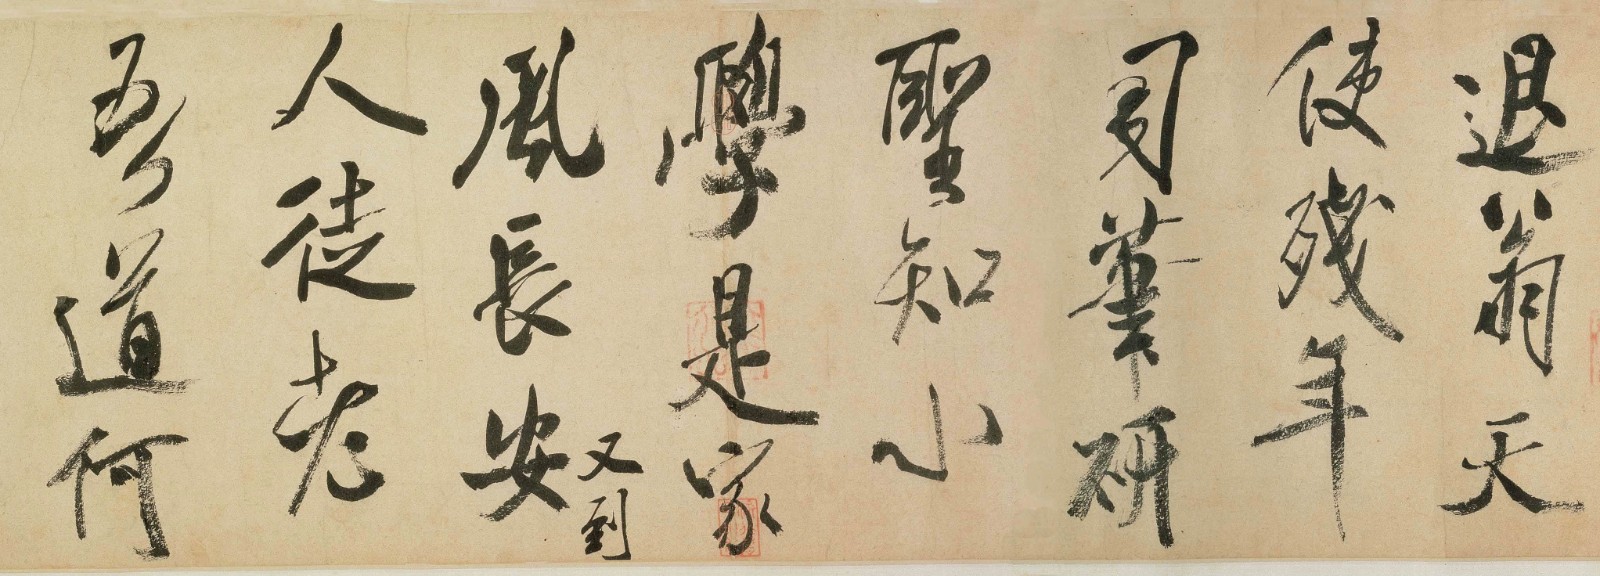 退翁天
使殘年
司筆研
聖知小
學是家
風長安
又到
人徒老
吾道何